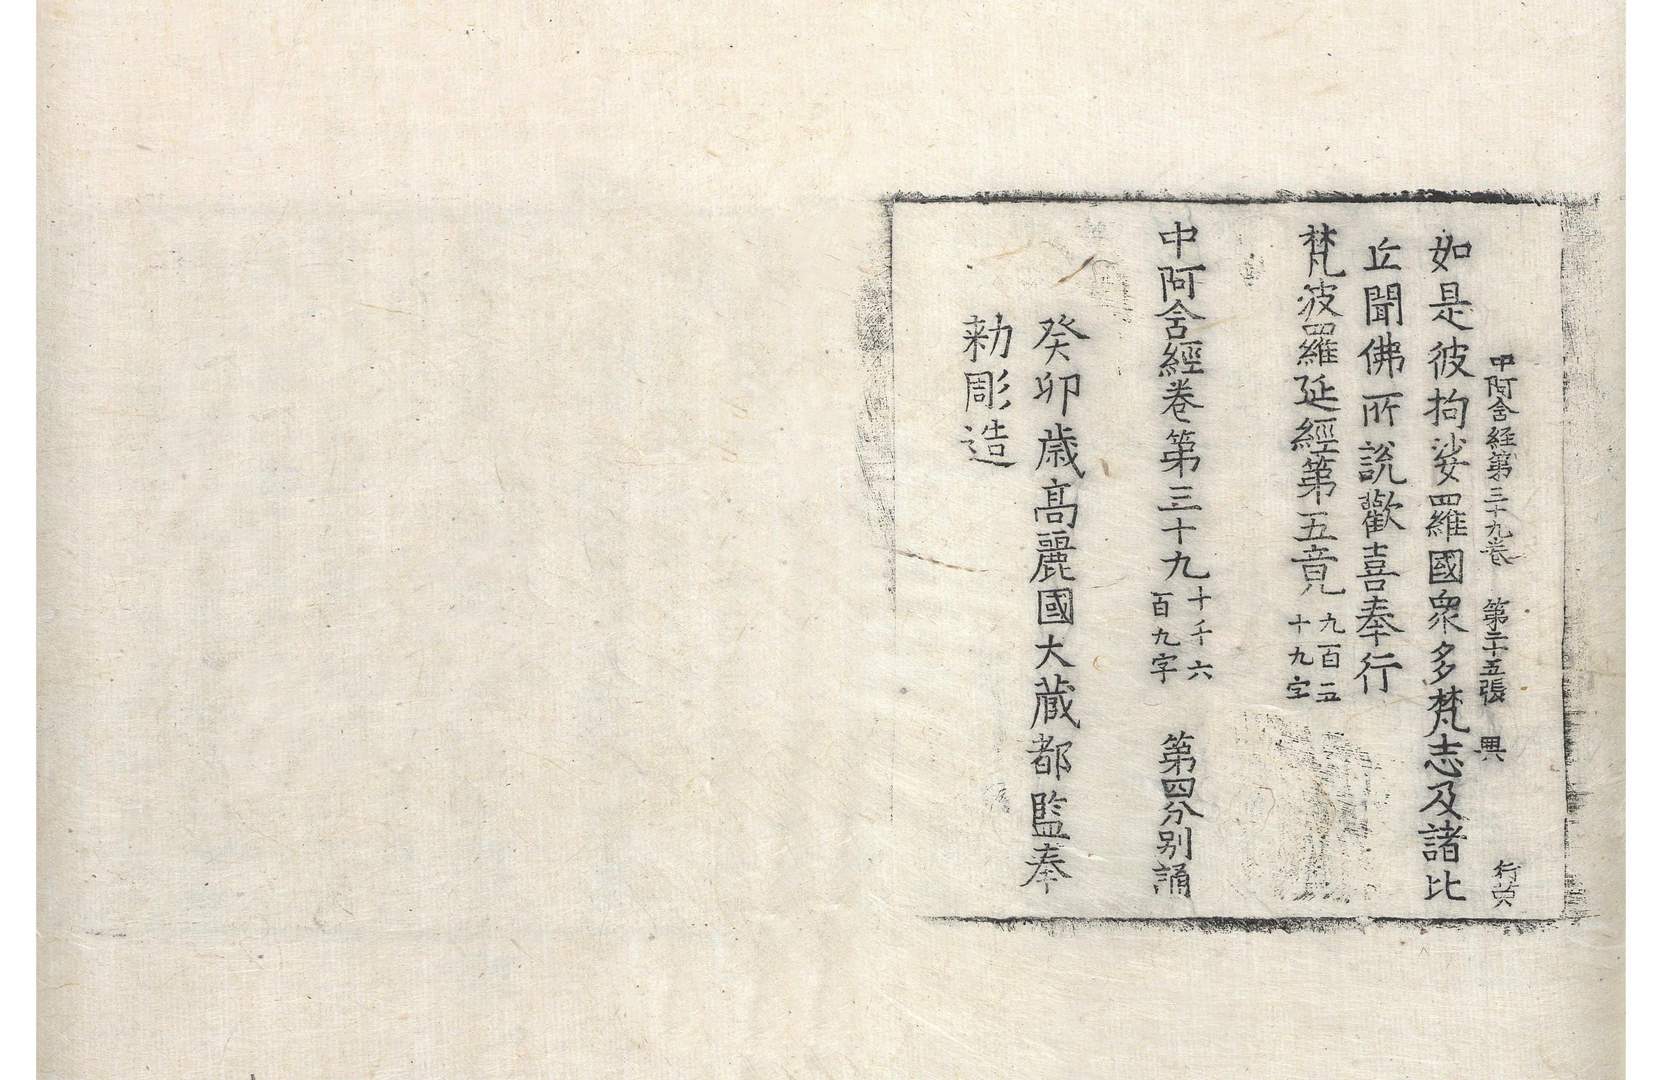 中阿含經第三十九卷 第二十五張 興
如是彼拘娑羅國衆多梵志及諸比
丘聞佛所說歡喜奉行
梵波羅延經第五竟 九百五十九字
中阿含經卷第三十九 十千六百九字 第四分別誦
癸卯歲高麗國大藏都監奉
勅彫造